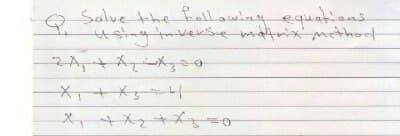 Q. Solve the following equations
using inverse matrix method
2X₁ + X₂ - X₃ = 0
X₁ + X₃ = 4
X₁ + X₂ + X₃ = 0